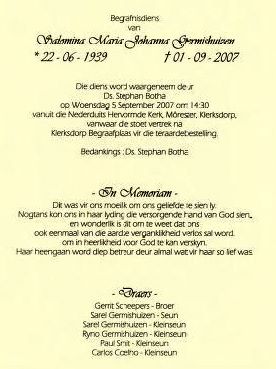 Begrafnisdiens
van
Salomina Maria Johanna Germishuizen
* 22 - 06 - 1939 † 01 - 09 - 2007
Die diens word waargeneem deur
Ds. Stephan Botha
op Woensdag 5 September 2007 om 14:30
vanuit die Nederduits Hervormde Kerk, Môrester, Klerksdorp,
vanwaar die stoet vertrek na
Klerksdorp Begraafplaas vir die teraardebestelling.
Bedankings : Ds. Stephan Botha
- In Memoriam -
Dit was vir ons moeilik om ons geliefde te sien ly.
Nogtans kon ons in haar lyding die versorgende hand van God sien,
en wonderlik is dit om te weet dat ons
ook eenmaal van die aardse verganklikheid verlos sal word.
om in heerlikheid voor God te kan verskyn.
Haar heengaan word diep betreur deur almal wat vir haar so lief was.
- Draers -
Gerrit Scheepers - Broer
Sarel Germishuizen - Seun
Sarel Germishuizen - Kleinseun
Ryno Germishuizen - Kleinseun
Paul Smit - Kleinseun
Carlos Coelho - Kleinseun